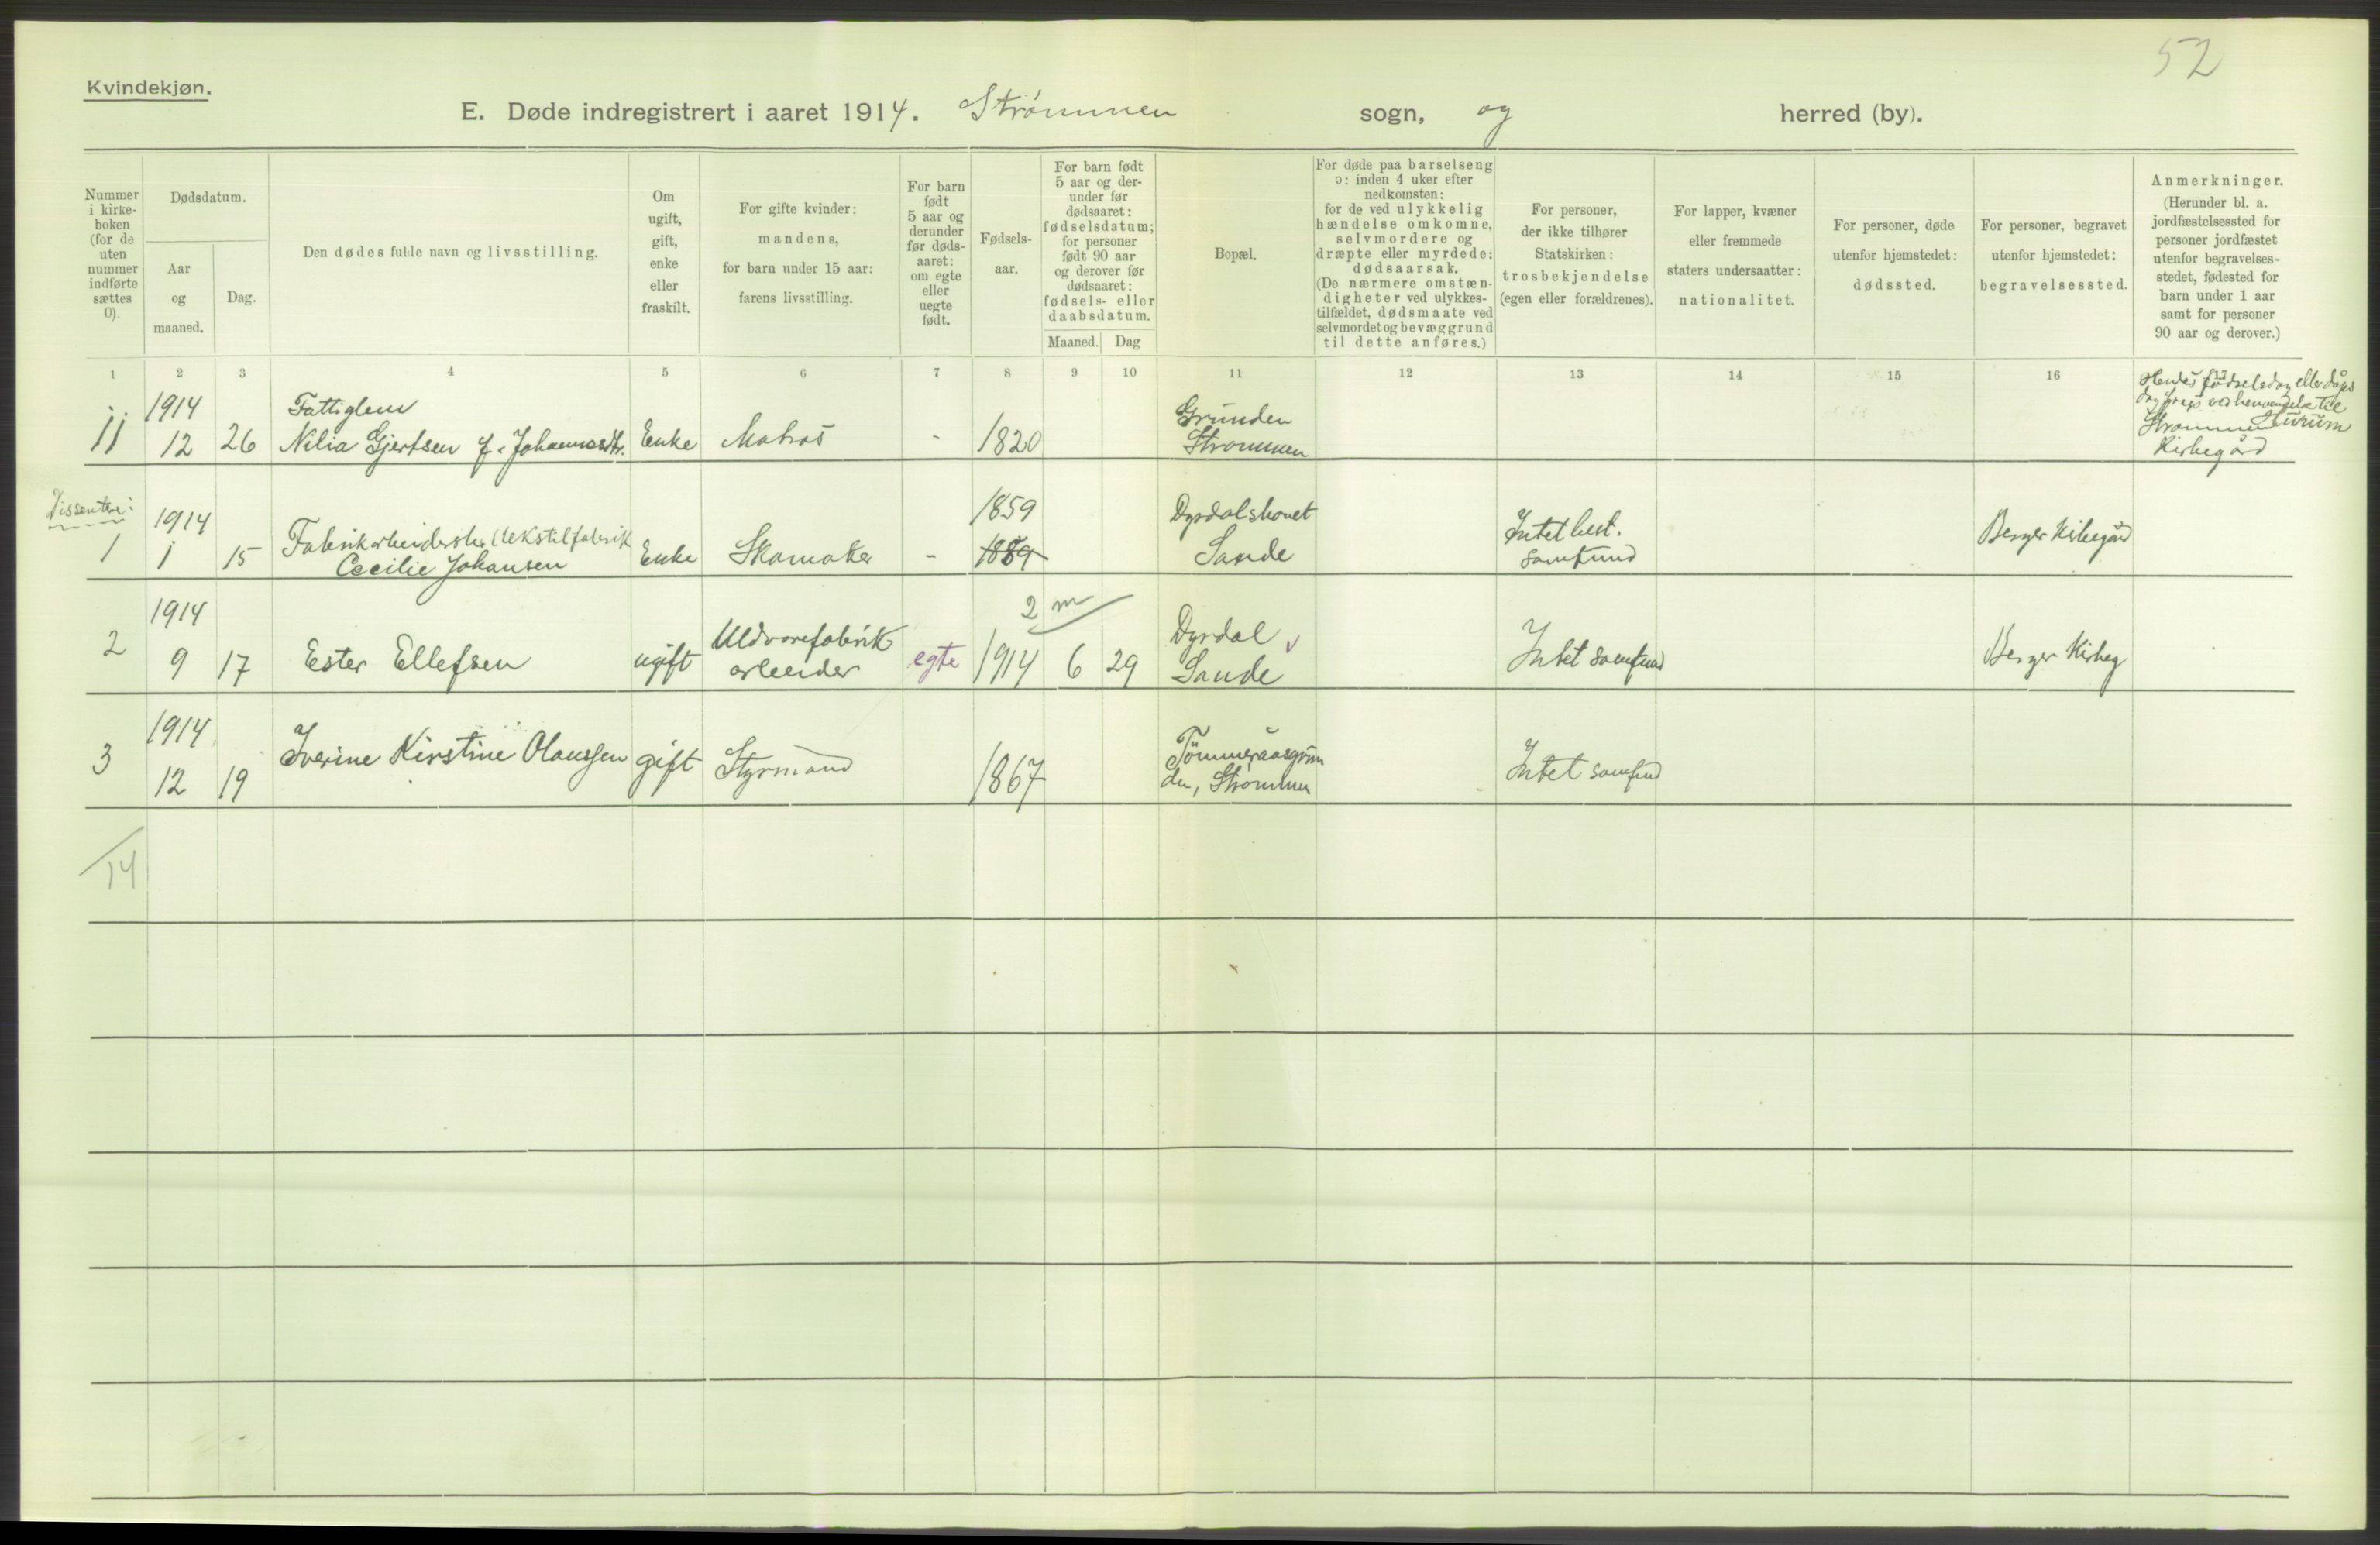 52
Kvindekjøn.
E. Døde indregistrert i aaret 1914. Strømmen sogn, og herred (by).
Nummer
i kirke-
boken
(for de
uten
nummer
indførte
sættes
0).
Dødsdatum.
Aar
og
maaned.
Dag.
Den dødes fulde navn og livsstilling.
Om
ugift,
gift,
enke
eller
fraskilt.
For gifte kvinder:
mandens,
for barn under 15 aar:
farens livsstilling.
For barn
født
5 aar og
derunder
før døds-
aaret:
om egte
eller
uegte
født.
Fødsels-
aar.
For barn født
5 aar og der-
under før
dødsaaret:
fødselsdatum;
for personer
født 90 aar
og derover før
dødsaaret:
fødsels- eller
daabsdatum.
Maaned. Dag
Bopæl.
For døde paa barselseng
ɔ: inden 4 uker efter
nedkomsten:
for de ved ulykkelig
hændelse omkomne,
selvmordere og
dræpte eller myrdede:
dødsaarsak.
(De nærmere omstæn-
digheter ved ulykkes-
tilfældet, dødsmaate ved
selvmordet og bevæggrund
til dette anføres.)
For personer,
der ikke tilhører
Statskirken:
trosbekjendelse
(egen eller forældrenes).
For lapper, kvæner
eller fremmede
staters undersaatter:
nationalitet.
For personer, døde
utenfor hjemstedet:
dødssted.
For personer, begravet
utenfor hjemstedet:
begravelsessted.
Anmerkninger.
(Herunder bl. a.
jordfæstelsessted for
personer jordfæstet
utenfor begravelses-
stedet, fødested for
barn under 1 aar
samt for personer
90 aar og derover.)
1 2 3 4 5 6 7 8 9 10 11 12 13 14 15 16 17
1914 Fattiglem Grunden
11 12 26 Nilia Gjertsen f. Johannesdtr. Enke Matros - 1820 Strømmen
Hendes fødselsdag eller dåps
dag fraes ved henvendelse til
Strømmen Hurum
Kirkegård
Dissentere:
1914 1859 Dyrdalskovet Intet best. Berger Kirkegård
1 1 15 Fabrikarbeiderske (tekstilfabrik Enke Skomaker - 1889 Sande samfund
Cecilie Johansen
1914 2 m Dyrdal
2 9 17 Ester Ellefsen ugift Uldvarefabrik egte 1914 6 29 Sande Intet samfund Berger Kirkeg
arbeider
1914 Tømmeraasgrun
3 12 19 Iverine Kirstine Olaussen gift Styrmand 1867 den, Strømmen Intet samfund
14